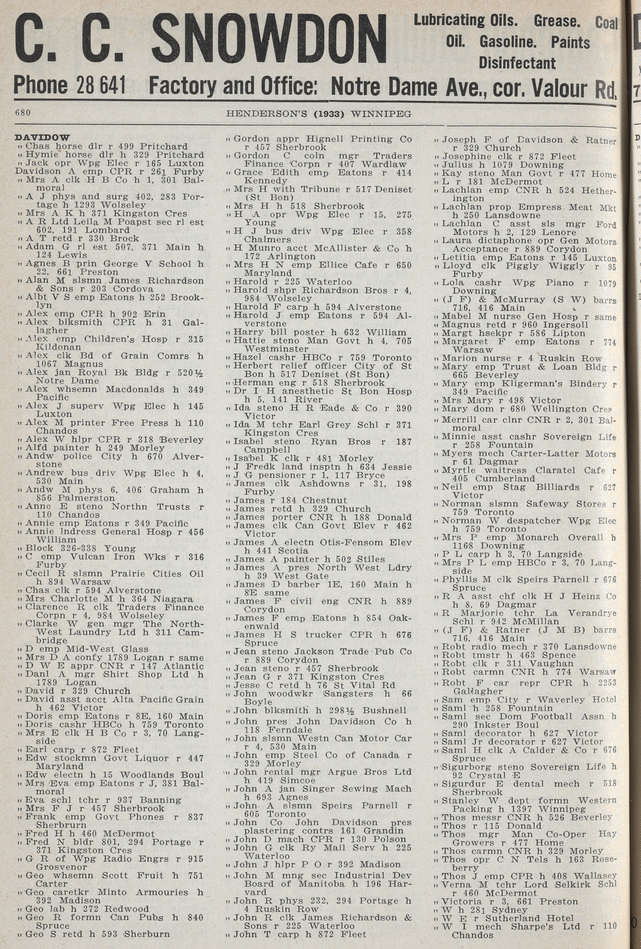 C. C. SNOWDON
Lubricating Oils. Grease. Coal
Oil. Gasoline. Paints
Disinfectant
Phone 28 641 Factory and Office: Notre Dame Ave., cor. Valour Rd.
680
HENDERSON'S (1933) WINNIPEG
DAVIDOW
" Chas horse dlr r 499 Pritchard
" Hymie horse dlr h 329 Pritchard
" Jack opr Wpg Elec r 165 Luxton
Davidson A emp CPR r 261 Furby
" Mrs A clk H B Co h 1, 301 Bal-
moral
" A J phys and surg 402, 283 Por-
tage h 1293 Wolseley
" Mrs A K h 371 Kingston Cres
" A R Ltd Leila M Poapst sec rl est
602, 191 Lombard
" A T retd r 330 Brock
" Adam G rl est 507, 371 Main h
124 Lewis
" Agnes B prin George V School h
22, 661 Preston
" Alan M slsmn James Richardson
& Sons r 203 Cordova
" Albt V S emp Eatons h 252 Brook-
lyn
" Alex emp CPR h 902 Erin
" Alex blksmith CPR h 31 Gal-
lagher
" Alex emp Children's Hosp r 315
Kildonan
" Alex clk Bd of Grain Comrs h
1067 Magnus
" Alex jan Royal Bk Bldg r 520½
Notre Dame
" Alex whsemn Macdonalds h 349
Pacific
" Alex J superv Wpg Elec h 145
Luxton
" Alex M printer Free Press h 110
Chandos
" Alex W hlpr CPR r 318 Beverley
" Alfd painter h 249 Morley
" Andw police City h 670 Alver-
stone
" Andrew bus driv Wpg Elec h 4,
530 Main
" Andw M phys 6, 406 Graham h
856 Palmerston
" Anne E steno Northn Trusts r
110 Chandos
" Annie emp Eatons r 349 Pacific
" Annie lndress General Hosp r 456
William
" Block 326-338 Young
" C emp Vulcan Iron Wks r 316
Furby
" Cecil R slsmn Prairie Cities Oil
h 894 Warsaw
" Chas clk r 594 Alverstone
" Mrs Charlotte M h 364 Niagara
" Clarence R clk Traders Finance
Corpn r 4, 984 Wolseley
" Clarke W gen mgr The North-
West Laundry Ltd h 311 Cam-
bridge
" D emp Mid-West Glass
" Mrs D A confy 1789 Logan r same
" D W E appr CNR r 147 Atlantic
" Danl A mgr Shirt Shop Ltd h
1789 Logan
" David r 329 Church
" David asst acct Alta Pacific Grain
h 462 Victor
" Doris emp Eatons r 8E, 160 Main
" Doris cashr HBCo h 759 Toronto
" Mrs E clk H B Co r 3, 70 Lang-
side
" Earl carp r 872 Fleet
" Edw stockmn Govt Liquor r 447
Maryland
" Edw electn h 15 Woodlands Boul
" Mrs Eva emp Eatons r J, 381 Bal-
moral
" Eva schl tchr r 937 Banning
" Mrs F J r 457 Sherbrook
" Frank emp Govt Phones r 837
Sherburn
" Fred H h 460 McDermot
" Fred N bldr 801, 294 Portage r
371 Kingston Cres
" G R of Wpg Radio Engrs r 915
Grosvenor
" Geo whsemn Scott Fruit h 751
Carter
" Geo caretkr Minto Armouries h
392 Madison
" Geo lab h 272 Redwood
" Geo R formn Can Pubs h 840
Spruce
" Geo S retd h 593 Sherburn
" Gordon appr Hignell Printing Co
r 457 Sherbrook
" Gordon C coln mgr Traders
Finance Corpn r 407 Wardlaw
" Grace Edith emp Eatons r 414
Kennedy
" Mrs H with Tribune r 517 Deniset
(St Bon)
" Mrs H h 518 Sherbrook
" H A opr Wpg Elec r 15, 275
Young
" H J bus driv Wpg Elec r 358
Chalmers
" H Munro acct McAllister & Co h
172 Arlington
" Mrs H N emp Ellice Cafe r 650
Maryland
" Harold r 225 Waterloo
" Harold shpr Richardson Bros r 4,
984 Wolseley
" Harold F carp h 594 Alverstone
" Harold J emp Eatons r 594 Al-
verstone
" Harry bill poster h 632 William
" Hattie steno Man Govt h 4, 705
Westminster
" Hazel cashr HBCo r 759 Toronto
" Herbert relief officer City of St
Bon h 517 Deniset (St Bon)
" Herman eng r 518 Sherbrook
" Dr I H anesthetic St Bon Hosp
h 5, 141 River
" Ida steno H R Eade & Co r 390
Victor
" Ida M tchr Earl Grey Schl r 371
Kingston Cres
" Isabel steno Ryan Bros r 187
Campbell
" Isabel K clk r 481 Morley
" J Fredk land insptn h 634 Jessie
" J G pensioner r 1, 117 Bryce
" James clk Ashdowns r 31, 198
Furby
" James r 184 Chestnut
" James retd h 329 Church
" James porter CNR h 188 Donald
" James clk Can Govt Elev r 462
Victor
" James A electn Otis-Fensom Elev
h 441 Scotia
" James A painter h 502 Stiles
" James A pres North West Ldry
h 39 West Gate
" James D barber 1E, 160 Main h
8E same
" James F civil eng CNR h 889
Corydon
" James F emp Eatons h 854 Oak-
enwald
" James H S trucker CPR h 676
Spruce
" Jean steno Jackson Trade Pub Co
r 889 Corydon
" Jean steno r 457 Sherbrook
" Jean G r 371 Kingston Cres
" Jesse C retd h 76 St Vital Rd
" John woodwkr Sangsters h 66
Boyle
" John blksmith h 298½ Bushnell
" John pres John Davidson Co h
118 Ferndale
" John slsmn Westn Can Motor Car
r 4, 530 Main
" John emp Steel Co of Canada r
329 Morley
" John rental mgr Argue Bros Ltd
h 419 Simcoe
" John A jan Singer Sewing Mach
h 693 Agnes
" John A slsmn Speirs Parnell r
605 Toronto
" John Co John Davidson pres
plastering contrs 161 Grandin
" John D mach CPR r 130 Polson
" John G clk Ry Mail Serv h 225
Waterloo
" John J hlpr P O r 392 Madison
" John M mng sec Industrial Dev
Board of Manitoba h 196 Har-
vard
" John R phys 232, 294 Portage h
4 Ruskin Row
" John R clk James Richardson &
Sons r 225 Waterloo
" John T carp h 872 Fleet
" Joseph F of Davidson & Ratner
r 329 Church
" Josephine clk r 872 Fleet
" Julius h 1079 Downing
" Kay steno Man Govt r 477 Home
" L r 181 McDermot
" Lachlan emp CNR h 524 Hether-
ington
" Lachlan prop Empress Meat Mkt
h 250 Lansdowne
" Lachlan C asst sls mgr Ford
Motors h 2, 129 Lenore
" Laura dictaphone opr Gen Motors
Acceptance r 889 Corydon
" Letitia emp Eatons r 145 Luxton
" Lloyd clk Piggly Wiggly r 95
Furby
" Lola cashr Wpg Piano r 1079
Downing
" (J F) & McMurray (S W) barrs
716, 416 Main
" Mabel M nurse Gen Hosp r same
" Magnus retd r 960 Ingersoll
" Margt hsekpr r 586 Lipton
" Margaret F emp Eatons r 774
Warsaw
" Marion nurse r 4 Ruskin Row
" Mary emp Trust & Loan Bldg r
665 Beverley
" Mary emp Kligerman's Bindery r
349 Pacific
" Mrs Mary r 498 Victor
" Mary dom r 680 Wellington Cres
" Merrill car clnr CNR r 2, 301 Bal-
moral
" Minnie asst cashr Sovereign Life
r 258 Fountain
" Myers mech Carter-Latter Motors
r 61 Dagmar
" Myrtle waitress Claratel Cafe r
405 Cumberland
" Neil emp Stag Billiards r 627
Victor
" Norman slsmn Safeway Stores r
759 Toronto
" Norman W despatcher Wpg Elec
h 759 Toronto
" Mrs P emp Monarch Overall h
1168 Downing
" P L carp h 3, 70 Langside
" Mrs P L emp HBCo r 3, 70 Lang-
side
" Phyllis M clk Speirs Parnell r 676
Spruce
" R A asst chf clk H J Heinz Co
h 8, 69 Dagmar
" R Marjorie tchr La Verandrye
Schl r 942 McMillan
" (J F) & Ratner (J M B) barrs
716, 416 Main
" Robt radio mech r 370 Lansdowne
" Robt tmstr h 463 Spence
" Robt clk r 311 Vaughan
" Robt carmn CNR h 774 Warsaw
" Robt F car repr CPR h 2253
Gallagher
" Sam emp City r Waverley Hotel
" Saml h 258 Fountain
" Saml sec Dom Football Assn h
290 Inkster Boul
" Saml decorator h 627 Victor
" Saml Jr decorator r 627 Victor
" Saml H clk A Calder & Co r 676
Spruce
" Sigurborg steno Sovereign Life h
92 Crystal E
" Sigurdur E dental mech r 518
Sherbrook
" Stanley W dept formn Western
Packing h 1397 Winnipeg
" Thos messr CNR h 526 Beverley
" Thos r 115 Donald
" Thos mgr Man Co-Oper Hay
Growers r 477 Home
" Thos carmn CNR h 329 Morley
" Thos opr C N Tels h 163 Rose-
berry
" Thos J emp CPR h 408 Wallasey
" Verna M tchr Lord Selkirk Schl
r 460 McDermot
" Victoria r 3, 661 Preston
" W h 281 Sydney
" W E r Sutherland Hotel
" W I mech Sharpe's Ltd r 110
Chandos